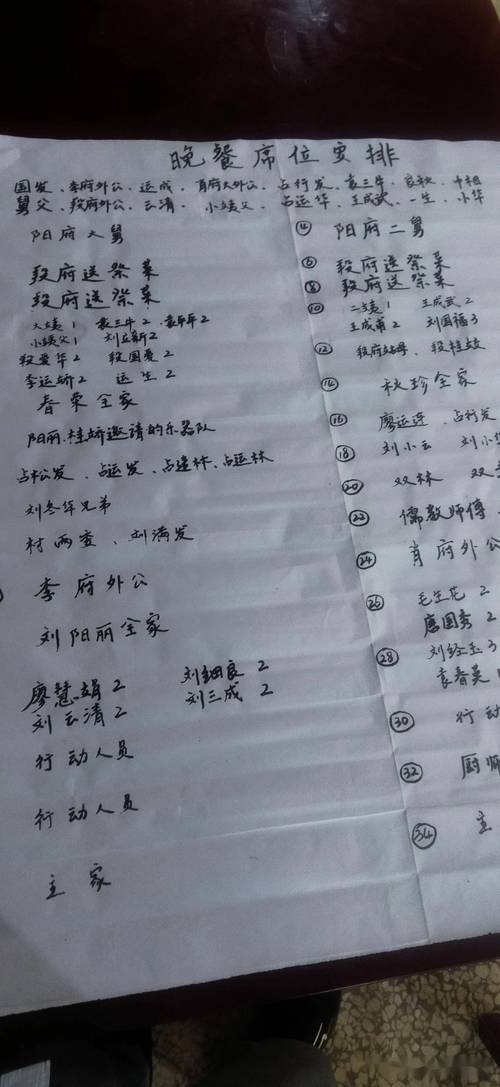 晚餐席位安排
国发、李府外公、运成、肖府大外公、占行发、袁三牛、家秋、中祖
舅父、段府外公、云清、小姨父、占运华、王成武、一生、小华
阳府大舅 ④ 阳府二舅
段府送祭菜 ⑥ 段府送祭菜
段府送祭菜 ⑧ 段府送祭菜
大姨1 袁三牛2、袁军平2 ⑩ 二姨1 王成武2
小姨父1 刘立新2 王成甫2 刘国福3
段爱华2 段国爱2 ⑫ 段府姑母、段桂枝
李运娇2 运生2
春荣全家 ⑭ 秋珍全家
阳丽、桂娇邀请的乐器队 ⑯ 廖运连、占行发
占松发、占运发、占建林、占运林 ⑱ 刘小云 刘小华
刘冬华兄弟 ⑳ 双林 双
村两委、刘满发 ㉒ 儒教师傅
李府外公 ㉔ 肖府外公
刘阳丽全家 ㉖ 毛生花2
唐国秀2
廖慧娟2 刘细良2 ㉘ 刘经玉3
刘云清2 刘三成2 袁春英1
行动人员 ㉚ 行动
行动人员 ㉜ 厨师
主家 ㉞ 主